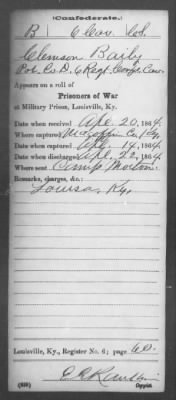 (Confederate.)
B | 6 Cav. | C.S.
Clemson Baily
Pvt. Co. D, 6 Regt. Conf. Cav.
Appears on a roll of
Prisoners of War
at Military Prison, Louisville, Ky.
Date when received Apl. 20, 1864.
Where captured Magoffin Co. Ky.
Date when captured Apl. 14, 1864
Date when discharged Apl. 22, 1864
Where sent Camp Morton.
Remarks, charges, &c.:
Louisa, Ky.
Louisville, Ky., Register No. 6; page 60.
Copyist.